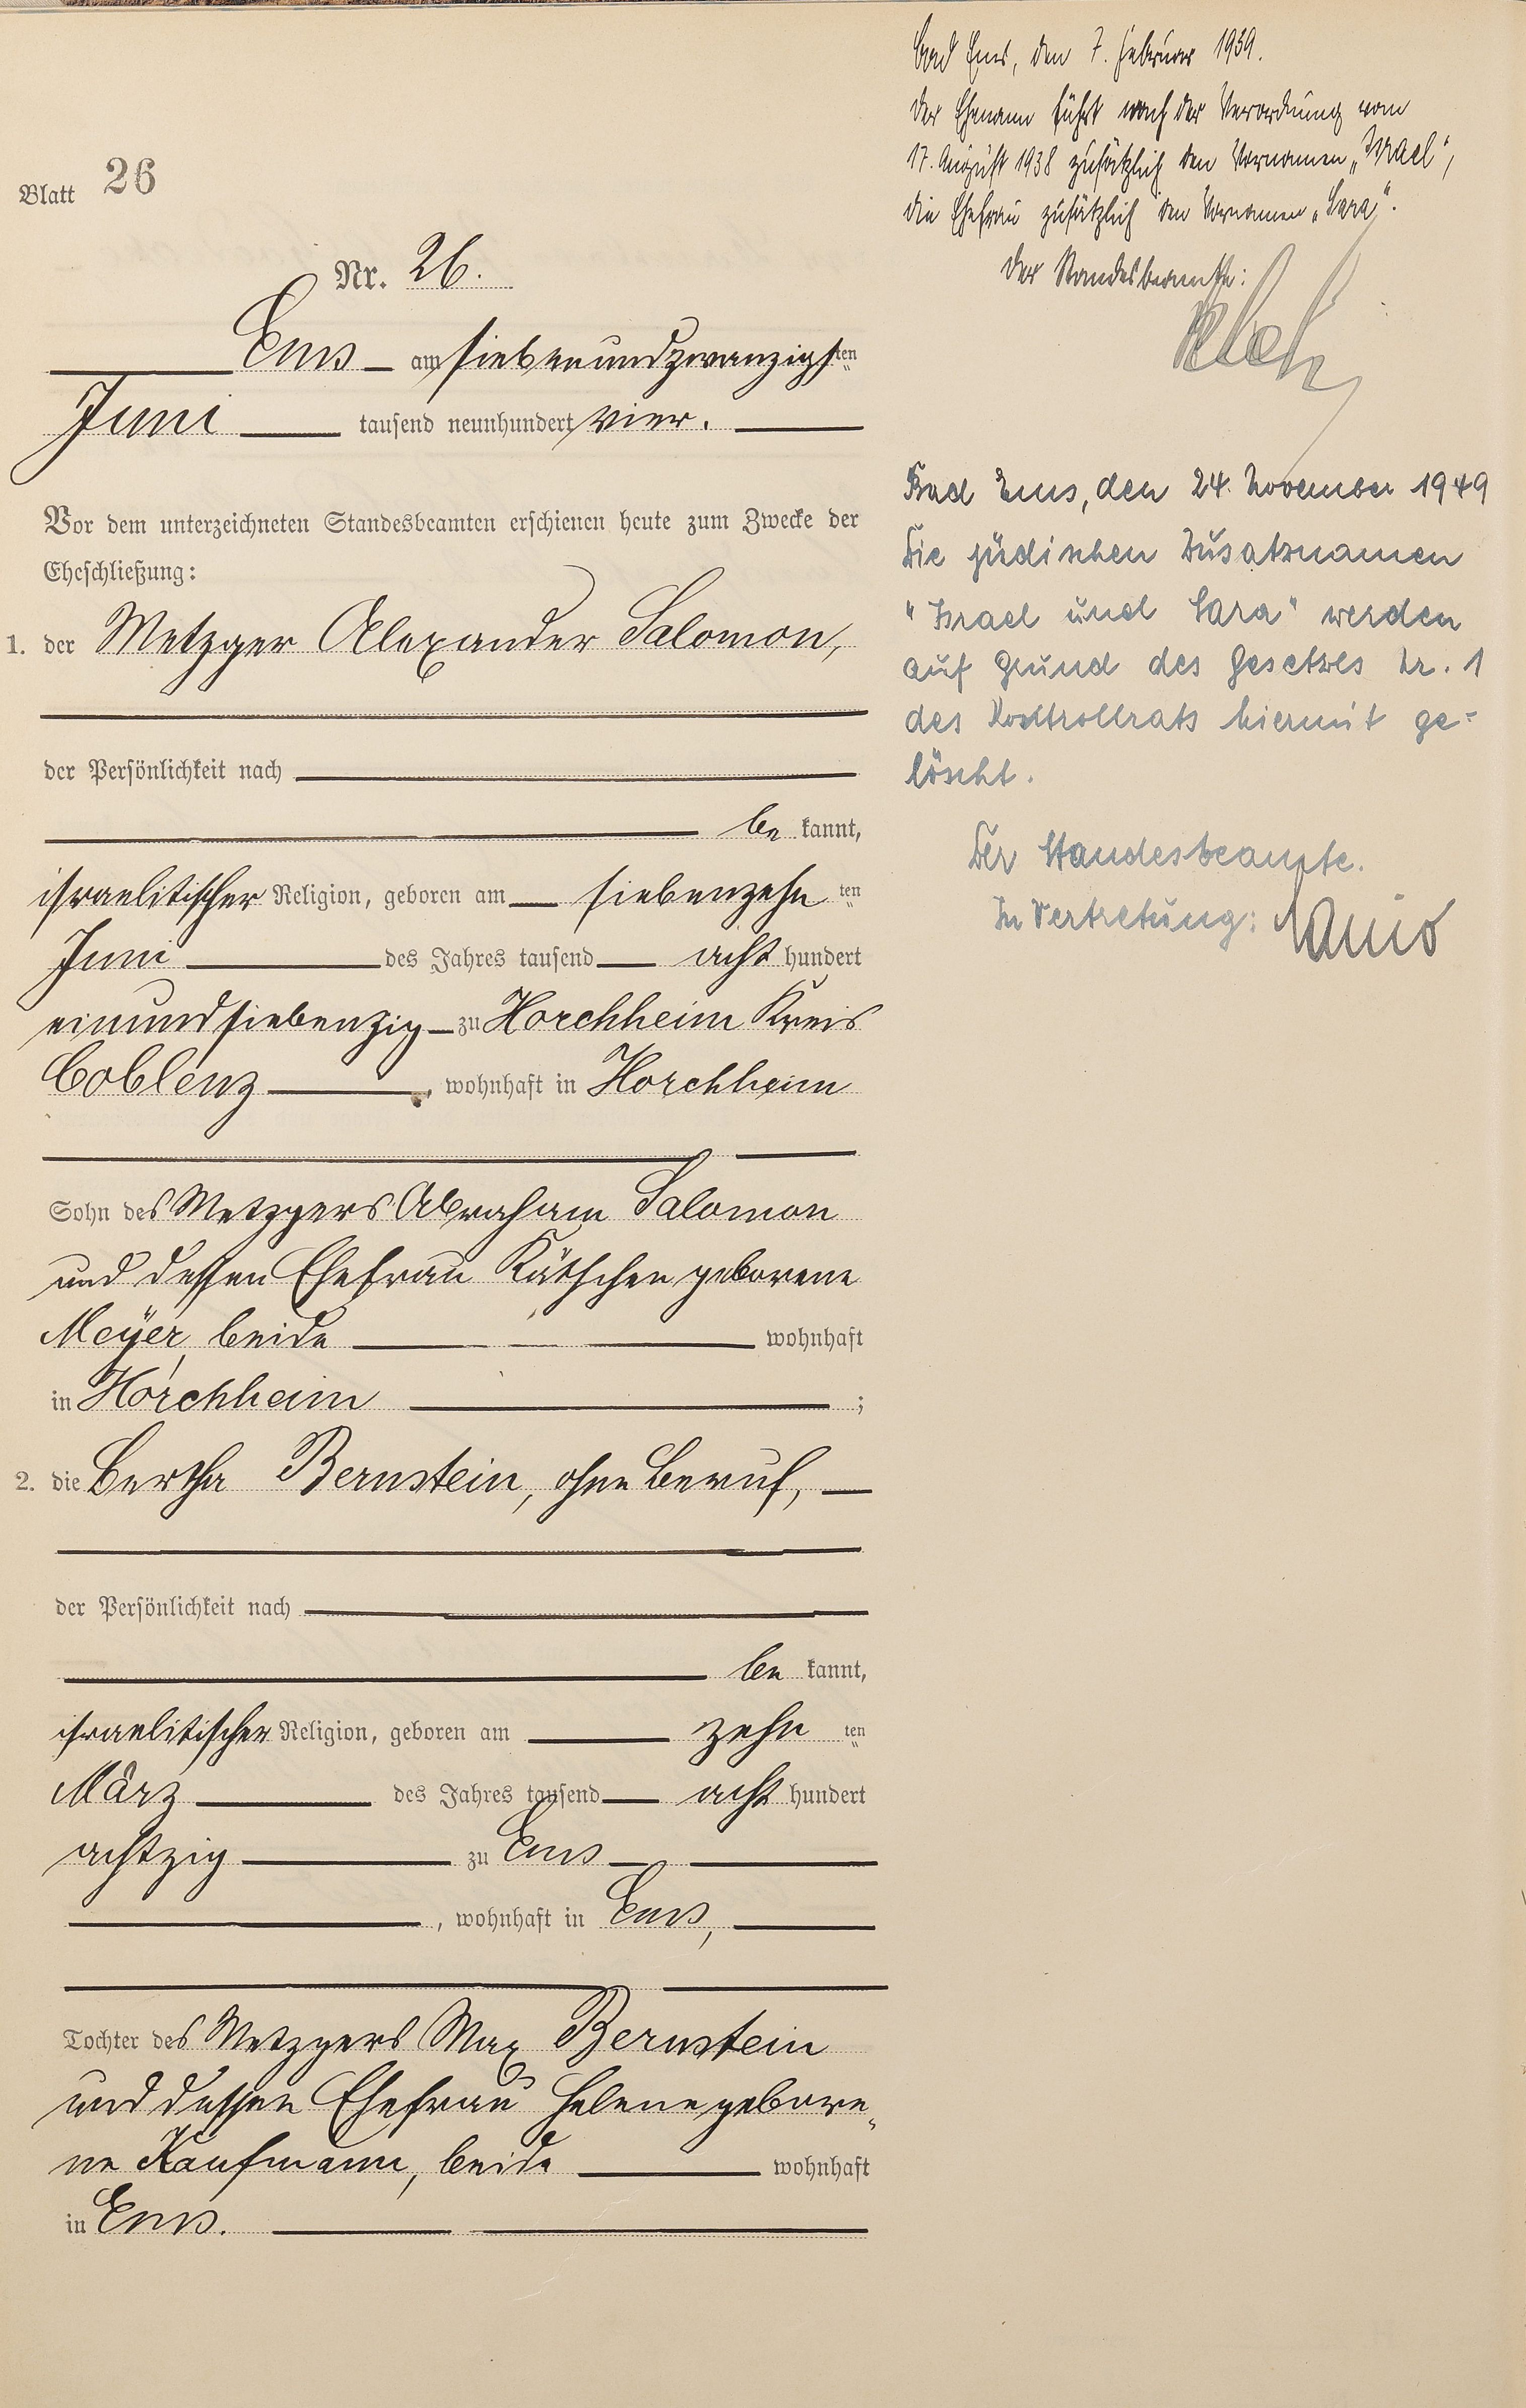 Blatt 26
Nr. 26.
Ems am siebenundzwanzigsten
Juni tausend neunhundert vier.
Vor dem unterzeichneten Standesbeamten erschienen heute zum Zwecke der
Eheschließung:
1. der Metzger Alexander Salomon,
der Persönlichkeit nach
be kannt,
israelitischer Religion, geboren am siebenzehn ten
Juni des Jahres tausend acht hundert
einundsiebenzig zu Horchheim Kreis
Coblenz, wohnhaft in Horchheim
Sohn des Metzgers Abraham Salomon
und dessen Ehefrau Kätchen geborene
Meyer, beide wohnhaft
in Horchheim ;
2. die Bertha Bernstein, ohne Beruf,
der Persönlichkeit nach
be kannt,
israelitischer Religion, geboren am zehn ten
März des Jahres tausend acht hundert
achtzig zu Ems
, wohnhaft in Ems,
Tochter des Metzgers Max Bernstein
und dessen Ehefrau Helene gebore-
ne Kaufmann, beide wohnhaft
in Ems.
Bad Ems, den 7. Februar 1939.
Der Ehemann führt nach der Verordnung vom
17. August 1938 zusätzlich den Vornamen „Israel“,
die Ehefrau zusätzlich den Vornamen „Sara“.
Der Standesbeamte:
Bad Ems, den 24. November 1949
Die jüdischen Zusatznamen
"Israel und Sara" werden
auf Grund des Gesetzes Nr. 1
des Kontrollrats hiermit ge=
löscht.
Der Standesbeamte.
In Vertretung: